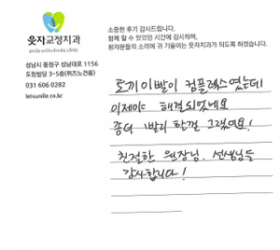 웃자교정치과
smile orthodontic clinic
성남시 중원구 성남대로 1156
도원빌딩 3-5층(퀴즈노건물)
031 606 0282
letsusmile.co.kr
소중한 후기 감사드립니다.
함께 할 수 있었던 시간에 감사하며,
환자분들의 소리에 귀 기울이는 웃자치과가 되도록 하겠습니다.
토끼이빨이 컴플렉스였는데
이제야 해결되었네요
좀더 빨리 할껄 그랬어요!
친절한 원장님, 선생님들
감사합니다!